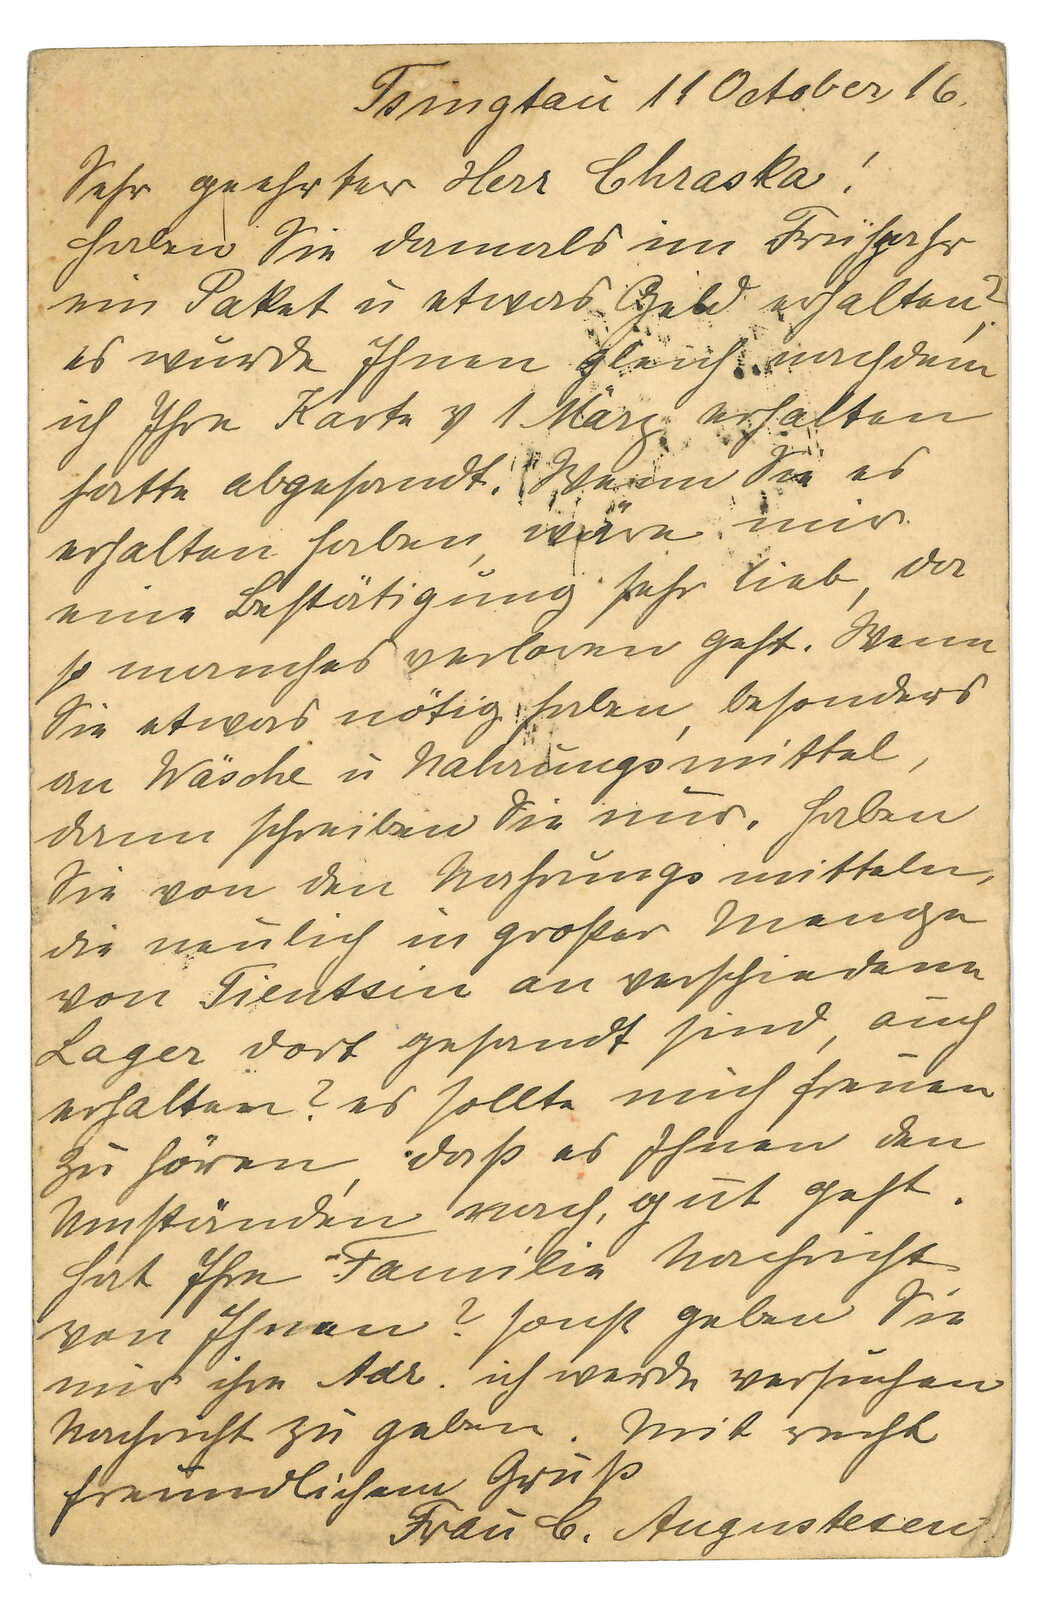 Tsingtau 11 October 16.
Sehr geehrter Herr Chraska!
haben Sie damals im Frühjahr
ein Paket u etwas Geld erhalten?
es wurde Ihnen gleich nachdem
ich Ihre Karte v 1 März erhalten
hatte abgesandt. Wenn Sie es
erhalten haben, wäre mir
eine Bestätigung sehr lieb, da
so manches verloren geht. Wenn
Sie etwas nötig haben, besonders
an Wäsche u Nahrungsmittel,
dann schreiben Sie nur. haben
Sie von den Nahrungsmitteln,
die neulich in großer Menge
von Tientsin an verschiedene
Lager dort gesandt sind, auch
erhalten? es sollte mich freuen
zu hören, daß es Ihnen den
Umständen nach, gut geht.
hat Ihre Familie Nachricht
von Ihnen? sonst geben Sie
mir ihre Adr. ich werde versuchen
Nachricht zu geben. Mit recht
freundlichem Gruß
Frau C. Augustesen